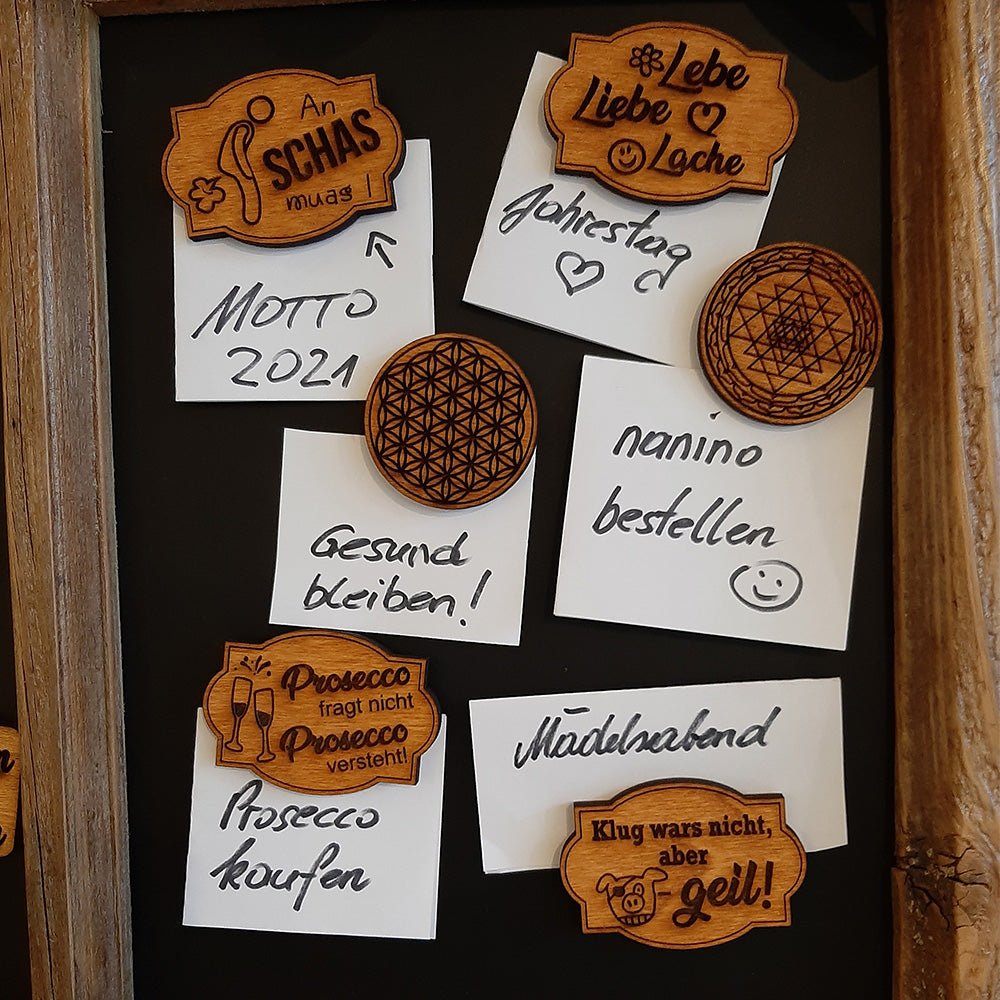 An
SCHAS
muas!
MOTTO
2021
Lebe
Liebe
Lache
Jahrestag
Gesund
bleiben!
nanino
bestellen
Prosecco
fragt nicht
Prosecco
versteht!
Prosecco
kaufen
Mädelsabend
Klug wars nicht,
aber
geil!